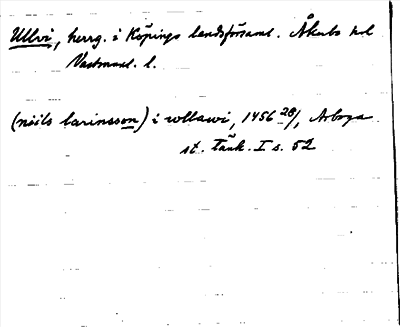 Ullvi, herrg. i Köpings landsförsaml. Åkerbo hd
Vastmanl. l.
(nöils larinsson) i wllawi, 1456 28/, Arboga
st. tänk. I s. 52